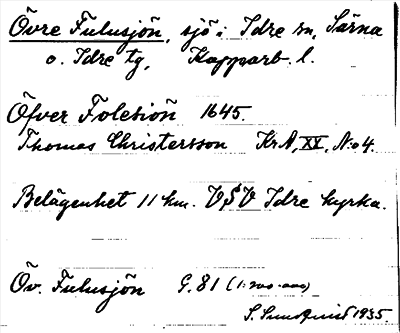 Övre Fulusjön, sjö i Idre sn, Särna
o. Idre tg, Kopparb. l.
Öfver Folesiön 1645.
Thomas Christersson KrA, XX, No 4.
Belägenhet 11 km. VSV Idre kyrka.
Öv. Fulusjön G. 81 (1:200.000)
S. Sundquist 1935.